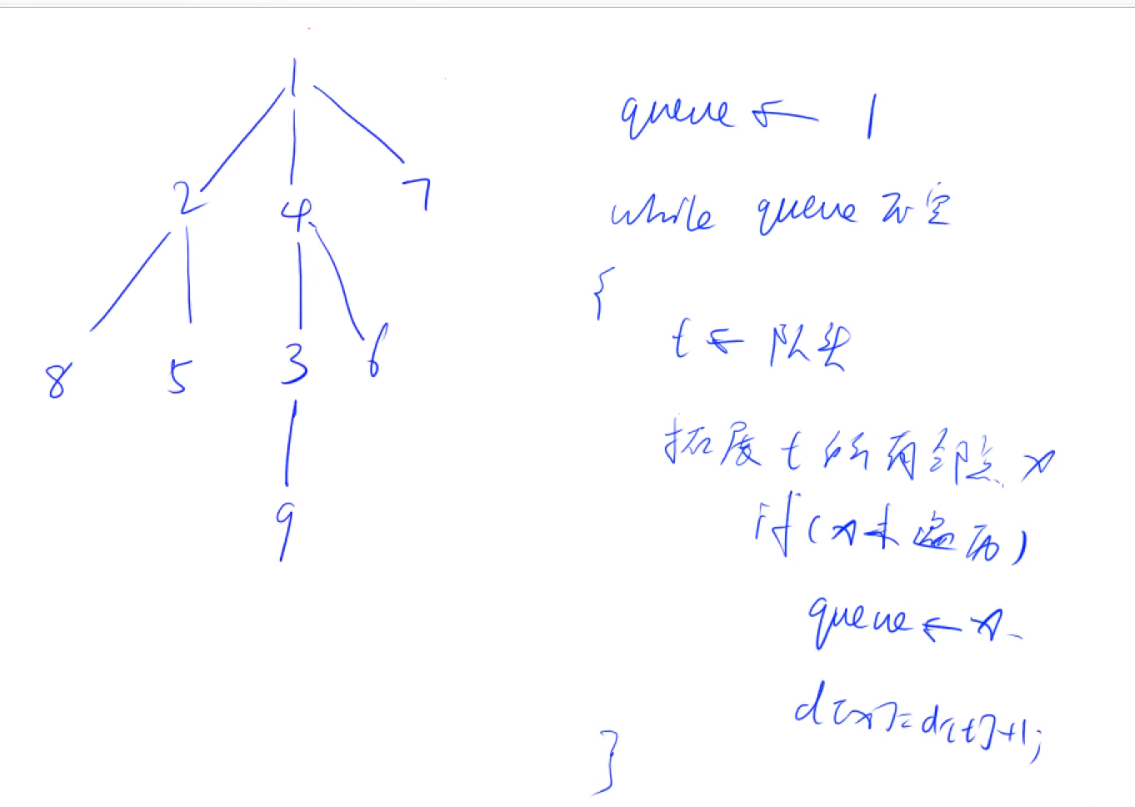 1
2 4 7
8 5 3 6
9
queue ← 1
while queue 不空
{
t ← 队头
拓展 t 所有邻点 x
if (x未遍历)
queue ← x
d[x]=d[t]+1;
}